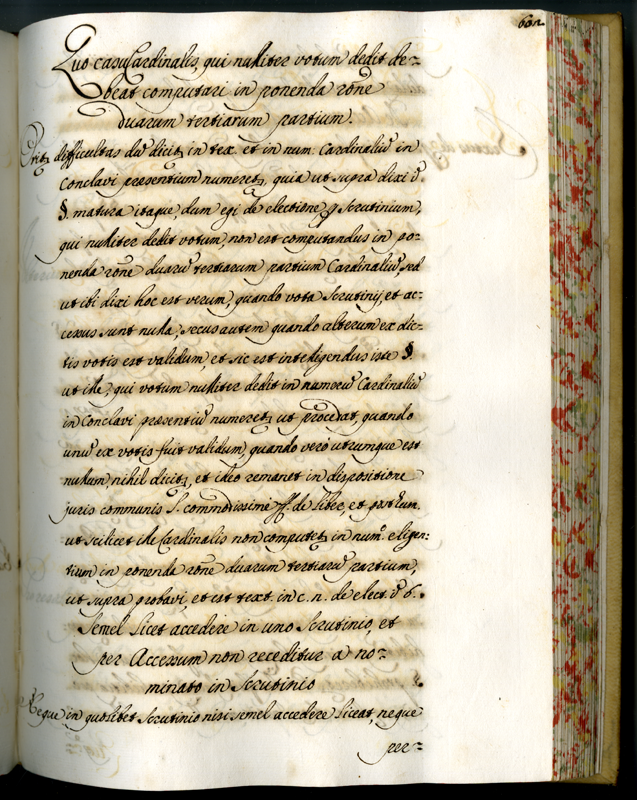 Quo casu Cardinalis, qui nulliter votum dedit de=
beat computari in ponenda rõne
duarum tertiarum partium.
difficultas dũ dicit in tex. et in num. Cardinaliũ in
Conclavi presentium numeret, quia ut supra dixi ũ
§. matura itaque, dum egi de electione p Scrutinium,
qui nulliter dedit votum, non est computandus in po=
nenda rõne duarũ tertiarum partium Cardinaliũ, sed
ut ibi dixi hoc est verum, quando vota Scrutinij, et ac=
cessus sunt nulla, secus autem quando alterum ex dic=
tis votis est validum, et sic est intelligendus iste §.
ut ille, qui votum nulliter dedit in numero Cardinaliũ
in Conclavi presentiũ numeret, ut procedat, quando
unũ ex votis fuit validum, quando vero utrumque est
nullum, nihil dicit, et ideo remanet in dispositione
juris communis l. commodissimè ff. de libe, et posthum.
ut scilicet ille Cardinalis non computet in num. eligen:
tium in ponenda rõne duarum tertiarũ partium,
ut supra probavi, et est text. in c. n. de elect. ũ 6.
Semel licet accedere in uno Scrutinio, et
per Accessum non receditur a no=
minato in Scrutinio
Neque in quolibet Scrutinio nisi semel accedere liceat, neque
per=